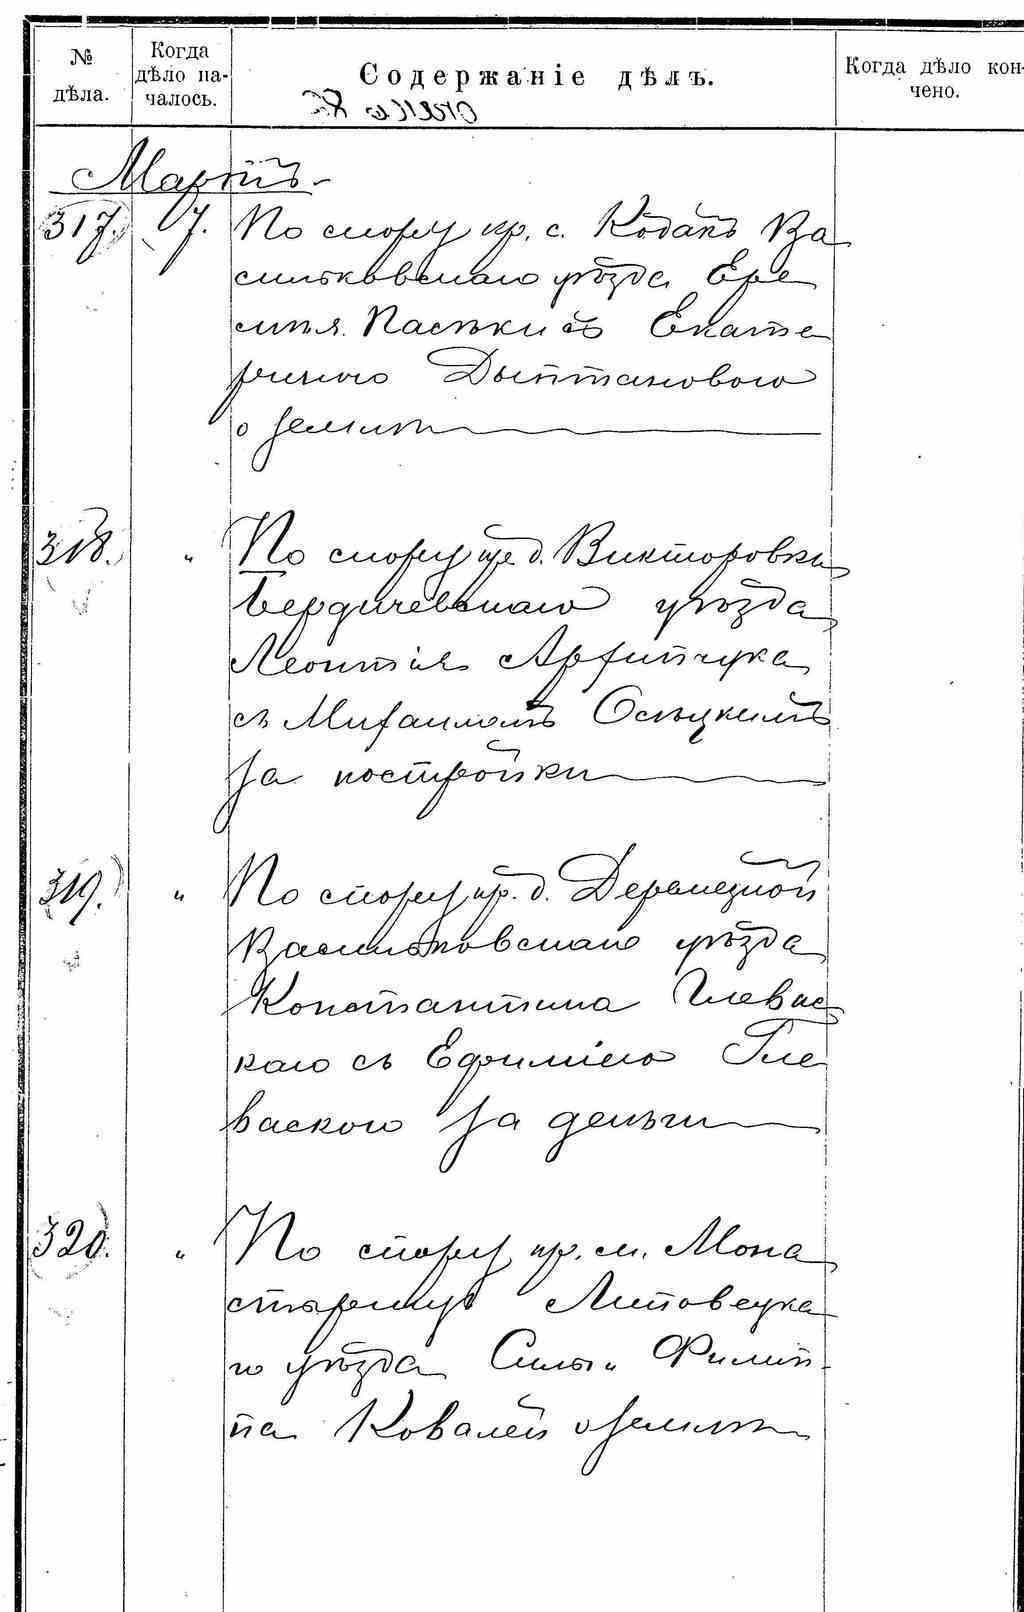 № дѣла.
Когда дѣло на-
чалось.
Содержаніе дѣлъ.
Когда дѣло кон-
чено.
Мартъ
317. 7. По спору кр. с. Кодакъ Ва
сильковскаго уѣзда Ере
мѣя Пасѣки съ Екате
риною
о землѣ
318. " По спору кр. д. Викторовки
Бердичевскаго уѣзда
Леонтія Архипчука
съ Михаиломъ Осѣцкимъ
за постройки
319. " По спору кр. д. Деремезной
Васильковскаго уѣзда
Константина Глевас
каго съ Ефиміею Гле
васкою за деньги
320. " По спору кр. м. Мона
стырища Липовецка
го уѣзда Силы и Филип-
па Ковалей о землѣ